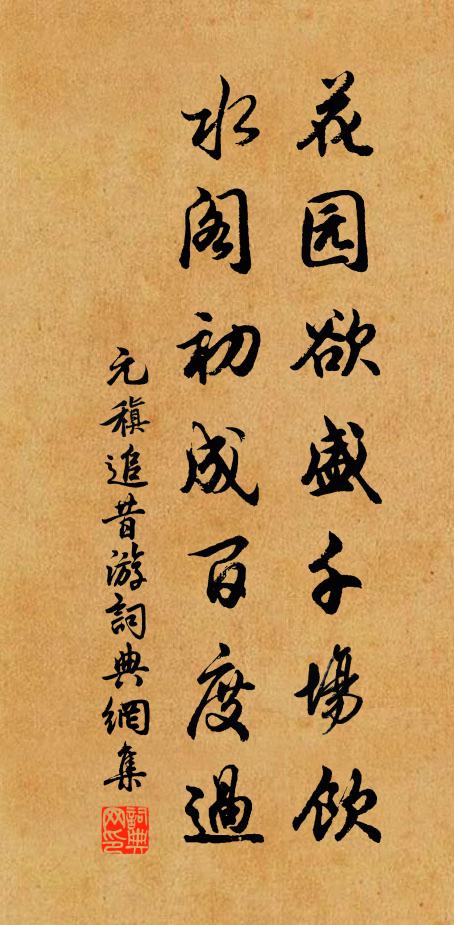 花园欲盛千場飲
水阁初成百度過
元稹追昔游詞典網集
詞典网印